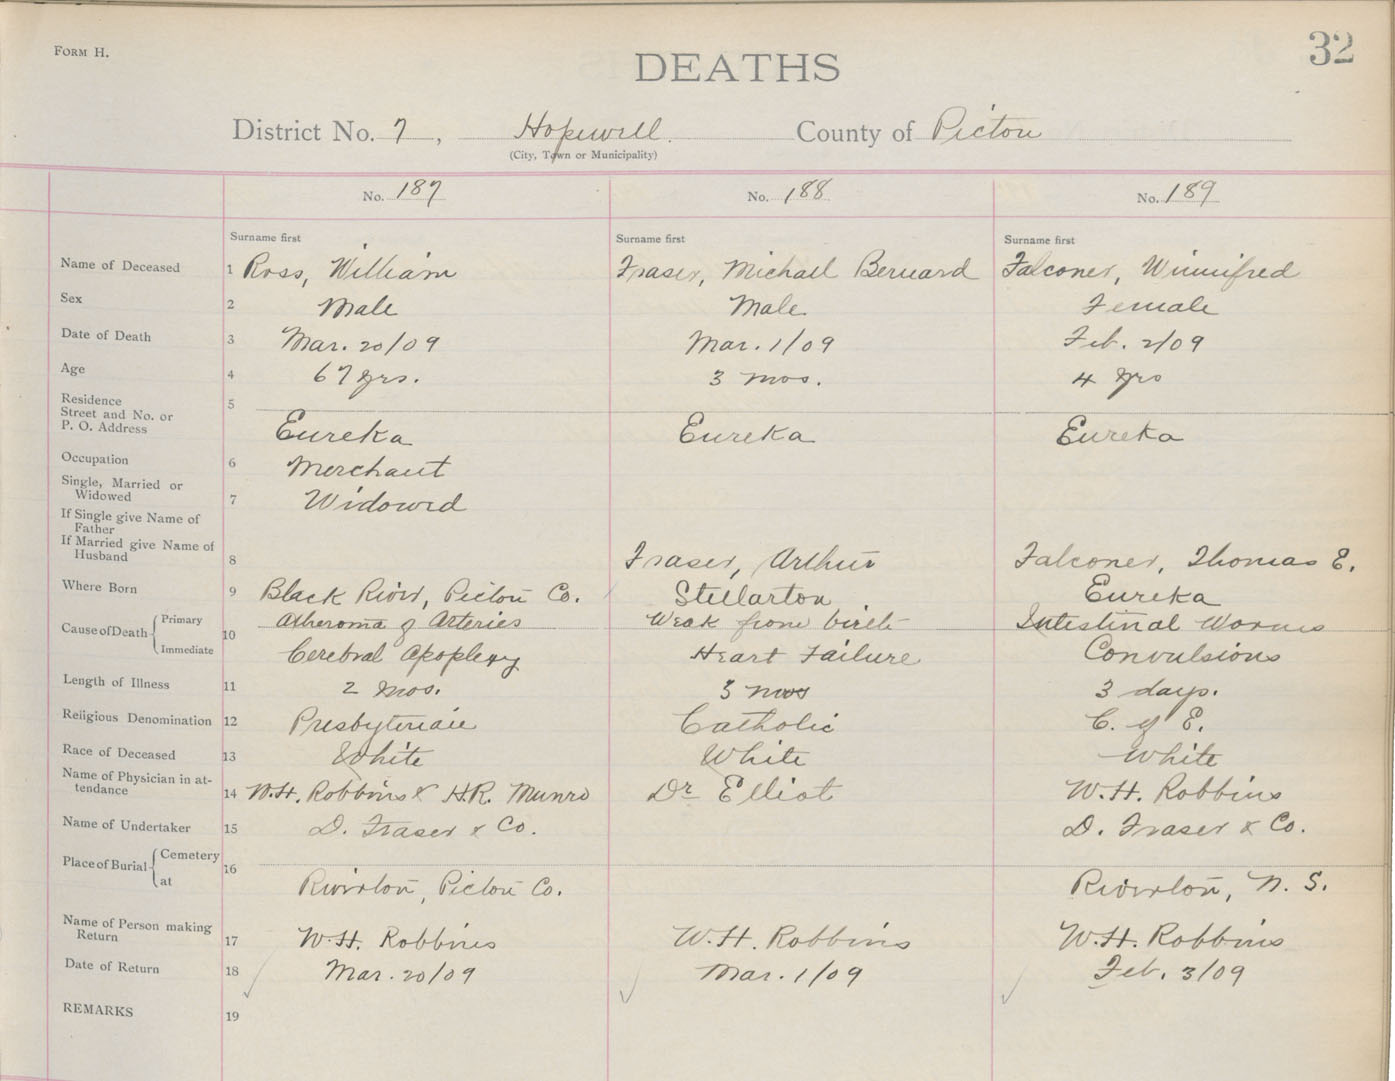 FORM H.
32
DEATHS
District No. 7, Hopewell. County of Pictou
(City, Town or Municipality)
No. 187 No. 188 No. 189
Surname first Surname first Surname first
Name of Deceased 1 Ross, William Fraser, Michael Bernard Falconer, Winnifred
Sex 2 Male Male Female
Date of Death 3 Mar. 20/09 Mar. 1/09 Feb. 2/09
Age 4 67 yrs. 3 mos. 4 yrs
Residence 5
Street and No. or
P. O. Address Eureka Eureka Eureka
Occupation 6 Merchant
Single, Married or
Widowed 7 Widowed
If Single give Name of
Father
If Married give Name of
Husband 8 Fraser, Arthur Falconer, Thomas E.
Where Born 9 Black River, Pictou Co. Stellarton Eureka
Cause of Death Primary 10 Atheroma of Arteries Weak from birth Intestinal Worms
Immediate Cerebral Apoplexy Heart Failure Convulsions
Length of Illness 11 2 mos. 3 mos 3 days.
Religious Denomination 12 Presbyterian Catholic C. of E.
Race of Deceased 13 White White White
Name of Physician in at-
tendance 14 W.H. Robbins & H.R. Munro Dr Elliot W.H. Robbins
Name of Undertaker 15 D. Fraser & Co. D. Fraser & Co.
Place of Burial Cemetery 16
at Riverton, Pictou Co. Riverton, N. S.
Name of Person making
Return 17 W.H. Robbins W.H. Robbins W.H. Robbins
Date of Return 18 Mar. 20/09 Mar. 1/09 Feb. 3/09
REMARKS 19